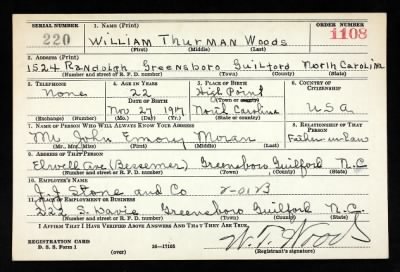 SERIAL NUMBER 1. NAME (Print) ORDER NUMBER
220 William Thurman Woods 1108
(First) (Middle) (Last)
2. ADDRESS (Print)
1524 Randolph Greensboro Guilford North Carolina
(Number and street or R. F. D. number) (Town) (County) (State)
3. TELEPHONE 4. AGE IN YEARS 5. PLACE OF BIRTH 6. COUNTRY OF CITIZENSHIP
None 22 High Point
DATE OF BIRTH (Town or county)
Nov 27 1917 North Carolina U.S.A.
(Exchange) (Number) (Mo.) (Day) (Yr.) (State or country)
7. NAME OF PERSON WHO WILL ALWAYS KNOW YOUR ADDRESS 8. RELATIONSHIP OF THAT PERSON
Mr. John Emory Moran Father-in-law
(Mr., Mrs., Miss) (First) (Middle) (Last)
9. ADDRESS OF THAT PERSON
Elwell Ave (Bessemer) Greensboro Guilford N.C.
(Number and street or R. F. D. number) (Town) (County) (State)
10. EMPLOYER'S NAME
J. J. Stone and Co
11. PLACE OF EMPLOYMENT OR BUSINESS
222 S. Davie Greensboro Guilford N.C.
(Number and street or R. F. D. number) (Town) (County) (State)
I AFFIRM THAT I HAVE VERIFIED ABOVE ANSWERS AND THAT THEY ARE TRUE.
REGISTRATION CARD
D. S. S. Form 1 (over) 16—17105 W. T. Woods